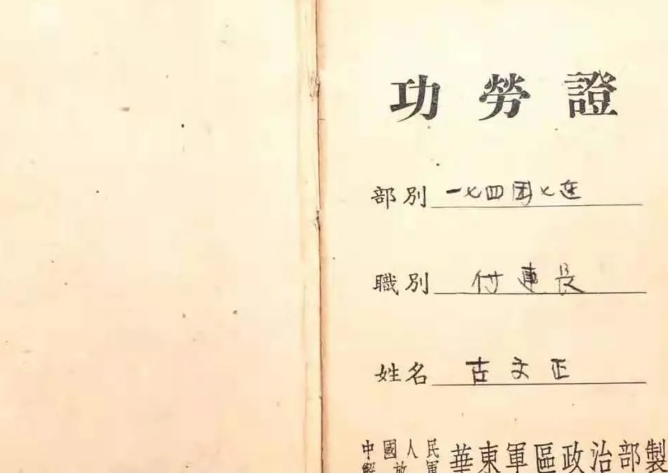 功勞證
部別 一七四团七连
職別 付連長
姓名 古文正
中國人民
華東軍區政治部製